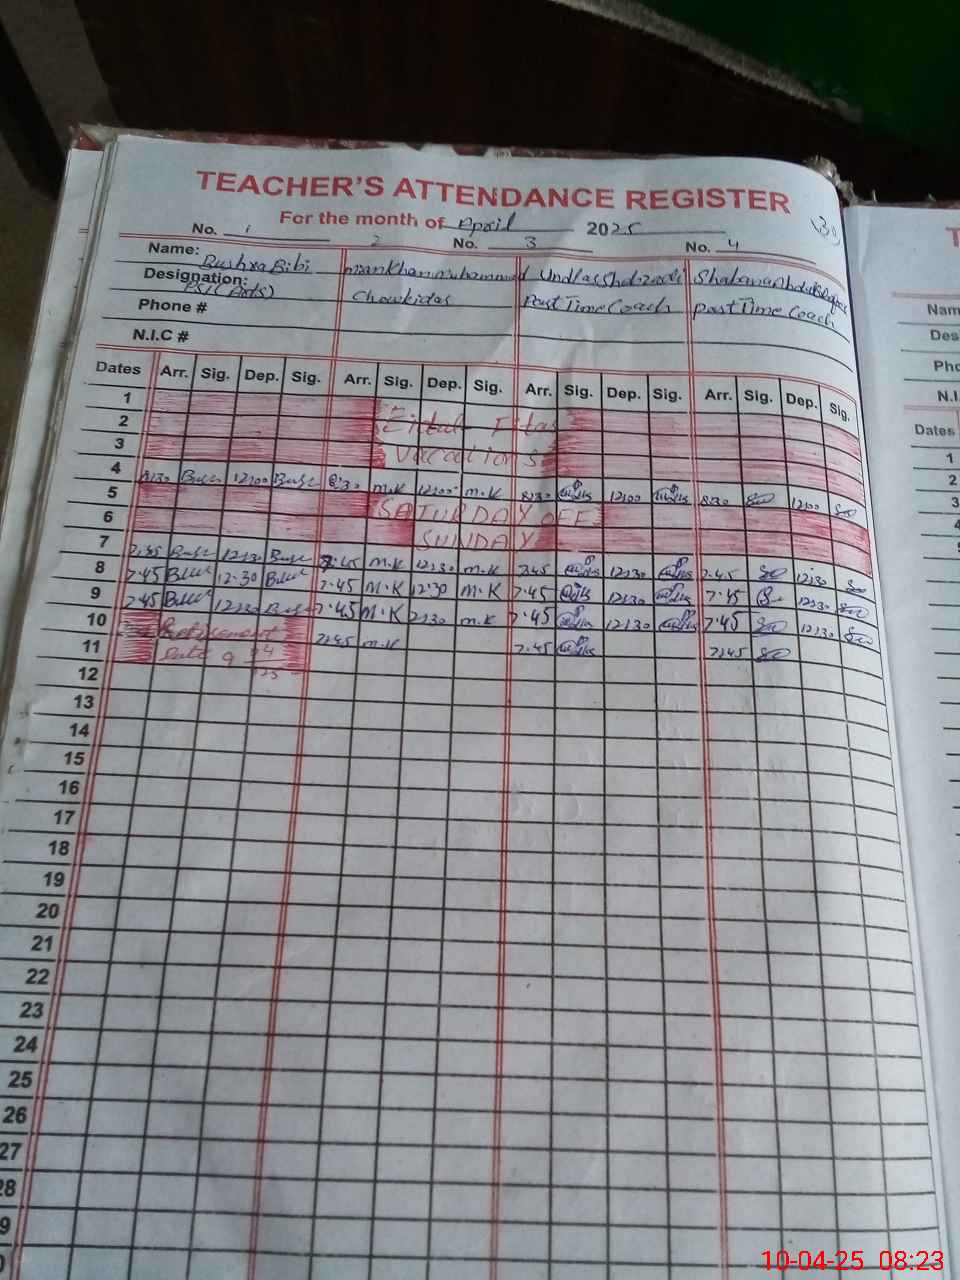 TEACHER'S ATTENDANCE REGISTER
For the month of April 2025
30
No. 1 2 No. 3 No. 4
Name: Bushra Bibi Khan Muhammad Shahzadi Shabana
Designation: PST (Arts) Chowkidar Part Time Coach Part Time Coach
Phone #
N.I.C #
Dates Arr. Sig. Dep. Sig. Arr. Sig. Dep. Sig. Arr. Sig. Dep. Sig. Arr. Sig. Dep. Sig.
1
2 Eidul-Fitar
3 Vacations
4 8:30 12:00 8:30 M.K 12:00 M.K 8:30 12:00 8:30 12:00
5 SATURDAY OFF
6 SUNDAY
7 7:45 12:30 7:45 M.K 12:30 M.K 7:45 12:30 7:45 12:30
8 7.45 12.30 7.45 M.K 12.30 M.K 7.45 12:30 7.45 12:30
9 7.45 12:30 7.45 M.K 12:30 M.K 7.45 12:30 7.45 12:30
10 Retirement 7:45 M.K 7.45 7:45
11 Date 9 4 25
12
13
14
15
16
17
18
19
20
21
22
23
24
25
26
27
28
9
0
T
Nam
Des
Pho
N.I.
Dates
1
2
3
4
5
10-04-25 08:23